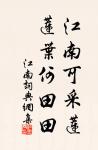 江南可采蓮
蓮葉何田田
江南詞典網集